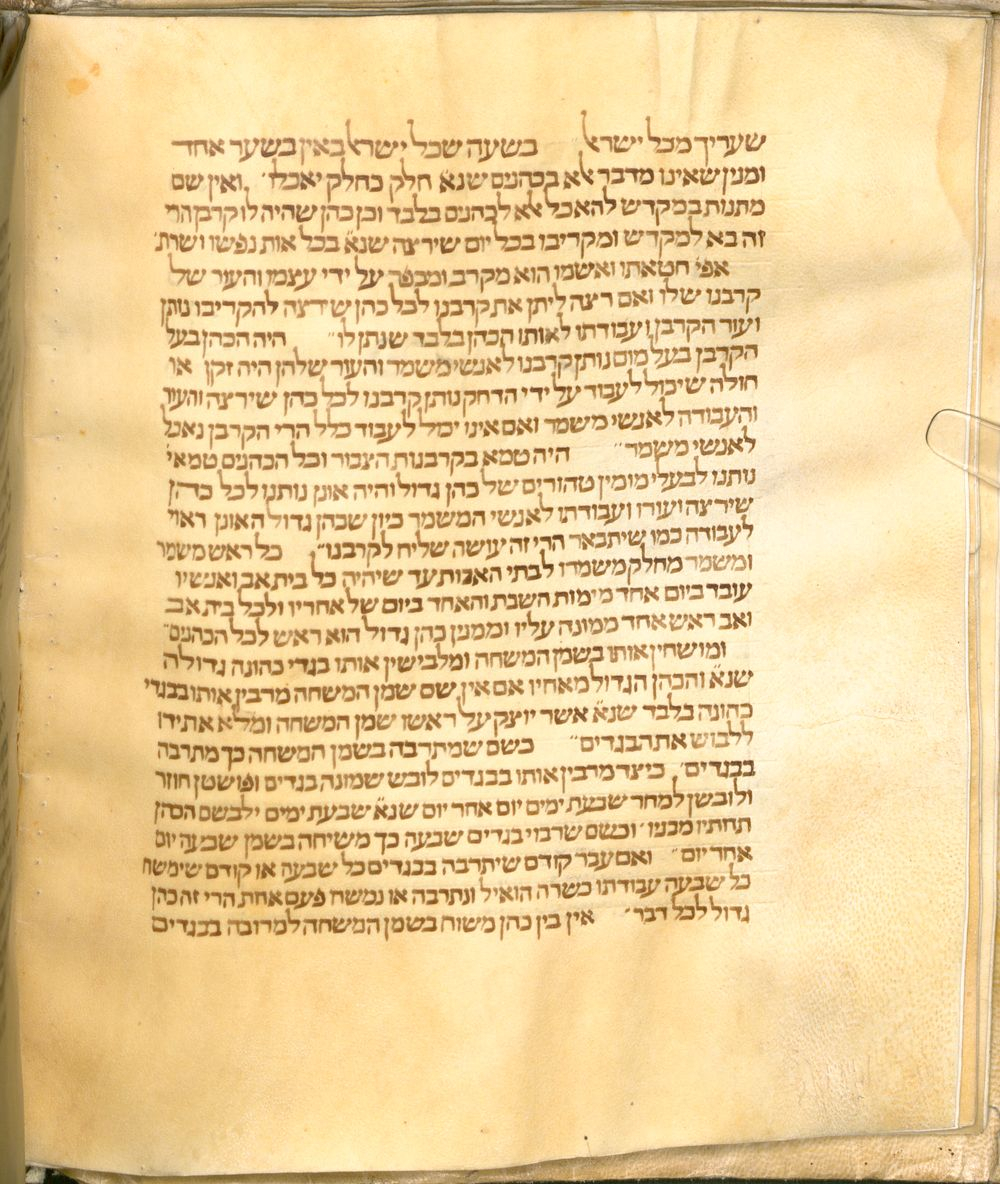 שעריך מכל ישראל בשעה שכל ישראל באין בשער אחד
ומנין שאינו מדבר אלא בכהנים שנא׳ חלק כחלק יאכלו׳ ואין שם
מתנות במקדש להאכל אלא לכהנים בלבד וכן כהן שהיה לו קרבן הרי
זה בא למקדש ומקריבו בכל יום שירצה שנא׳ בכל אות נפשו ושרת׳
אפי׳ חטאתו ואשמו הוא מקרב ומכפר על ידי עצמו והעור של
קרבנו שלו ואם רצה ליתן את קרבנו לכל כהן שירצה להקריבו נותן
ועור הקרבן ועבודתו לאותו הכהן בלבד שנתן לו״ היה הכהן בעל
הקרבן בעל מום נותן קרבנו לאנשי משמר והעור שלהן היה זקן או
חולה שיכול לעבוד על ידי הדחק נותן קרבנו לכל כהן שירצה והעור
והעבודה לאנשי משמר ואם אינו יכול לעבוד כלל הרי הקרבן נאכל
לאנשי משמר״ היה טמא בקרבנות הצבור וכל הכהנים טמאי׳
נותנו לבעלי מומין טהורים של כהן גדול והיה אונן נותנו לכל כהן
שירצה ועורו ועבודתו לאנשי המשמר כיון שכהן גדול האונן ראוי
לעבודה כמו שיתבאר הרי זה עושה שליח לקרבנו״ כל ראש משמר
ומשמר מחלק משמרו לבתי האבות עד שיהיה כל בית אב ואנשיו
עובד ביום אחד מימות השבת והאחד ביום של אחריו ולכל בית אב
ואב ראש אחד ממונה עליו וממנין כהן גדול הוא ראש לכל הכהנים״
ומושחין אותו בשמן המשחה ומלבישין אותו בגדי כהונה גדולה
שנא׳ והכהן הגדול מאחיו אם אין שם שמן המשחה מרבין אותו בבגדי
כהונה בלבד שנא׳ אשר יוצק על ראשו שמן המשחה ומלא את ידו
ללבוש את הבגדים״ כשם שמתרבה בשמן המשחה כך מתרבה
בבגדים׳ כיצד מרבין אותו בבגדים לובש שמונה בגדים ופושטן חוזר
ולובשן למחר שבעת ימים יום אחר יום שנא׳ שבעת ימים ילבשם הכהן
תחתיו מבניו׳ וכשם שרבוי בגדים שבעה כך משיחה בשמן שבעה יום
אחד יום״ ואם עבר קודם שיתרבה בבגדים כל שבעה או קודם שימשח
כל שבעה עבודתו כשרה הואיל ונתרבה או נמשח פעם אחת הרי זה כהן
גדול לכל דבר׳ אין בין כהן משוח בשמן המשחה למרובה בבגדים